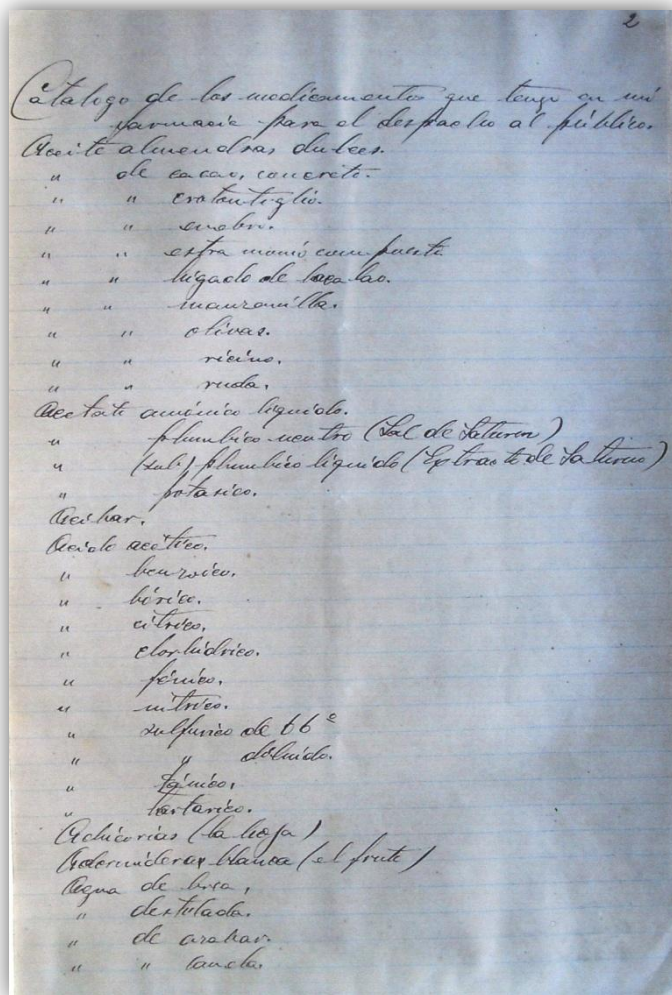 2
Catálogo de los medicamentos que tengo en mi
farmacia para el despacho al público.
Aceite almendras dulces.
" de cacao, concreto.
" " crotontiglio.
" " enebro.
" " estramonio compuesto
" " hígado de bacalao.
" " manzanilla.
" " olivas.
" " ricino.
" " ruda.
Acetato amónico líquido.
" plumbico neutro (Sal de Saturno)
" (sub) plumbico líquido (Extracto de Saturno)
" potasico.
Acibar.
Acido acético.
" benzoico.
" bórico.
" cítrico.
" clorhídrico.
" fénico.
" nítrico.
" sulfurico de 66º
" " diluido.
" tánico.
" tartarico.
Achicorias (la hoja)
Adormideras blanca (el fruto)
Agua de brea.
" destilada.
" de azahar.
" " canela.